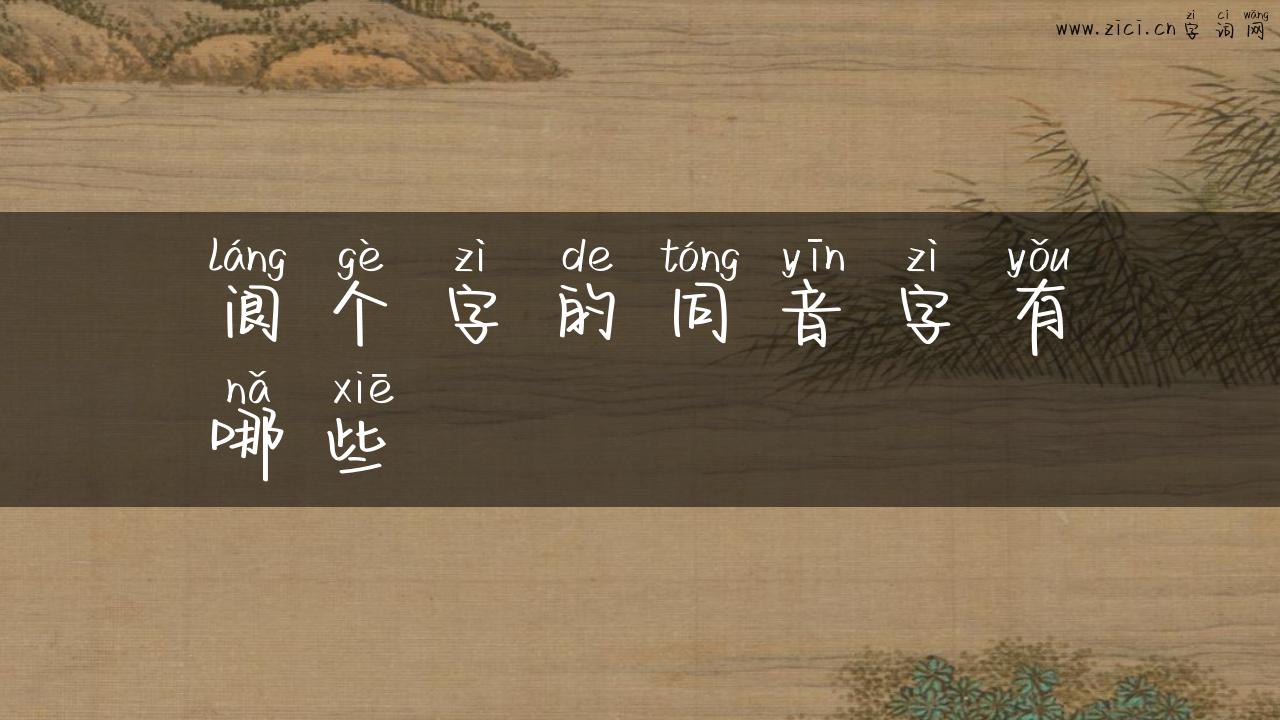 zì cí wǎng
www.zici.cn 字词网
láng gè zì de tóng yīn zì yǒu
阆个字的同音字有
nǎ xiē
哪些